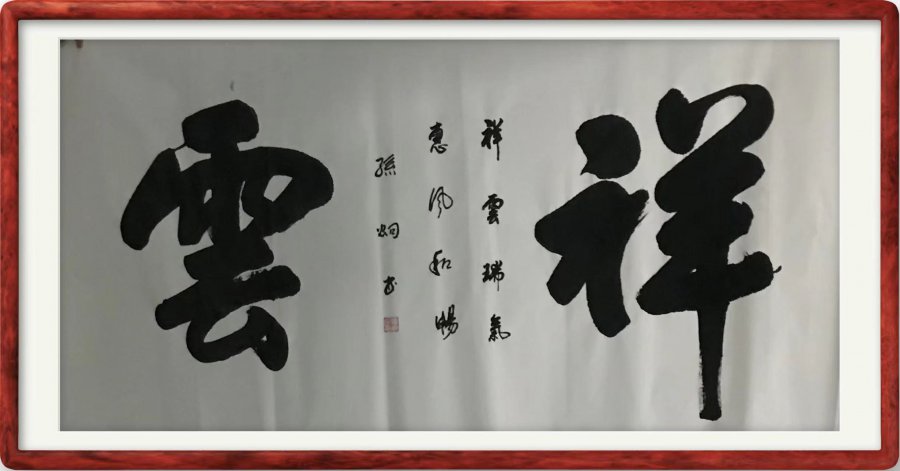 祥雲
祥雲瑞氣
惠風和暢
孫炯書